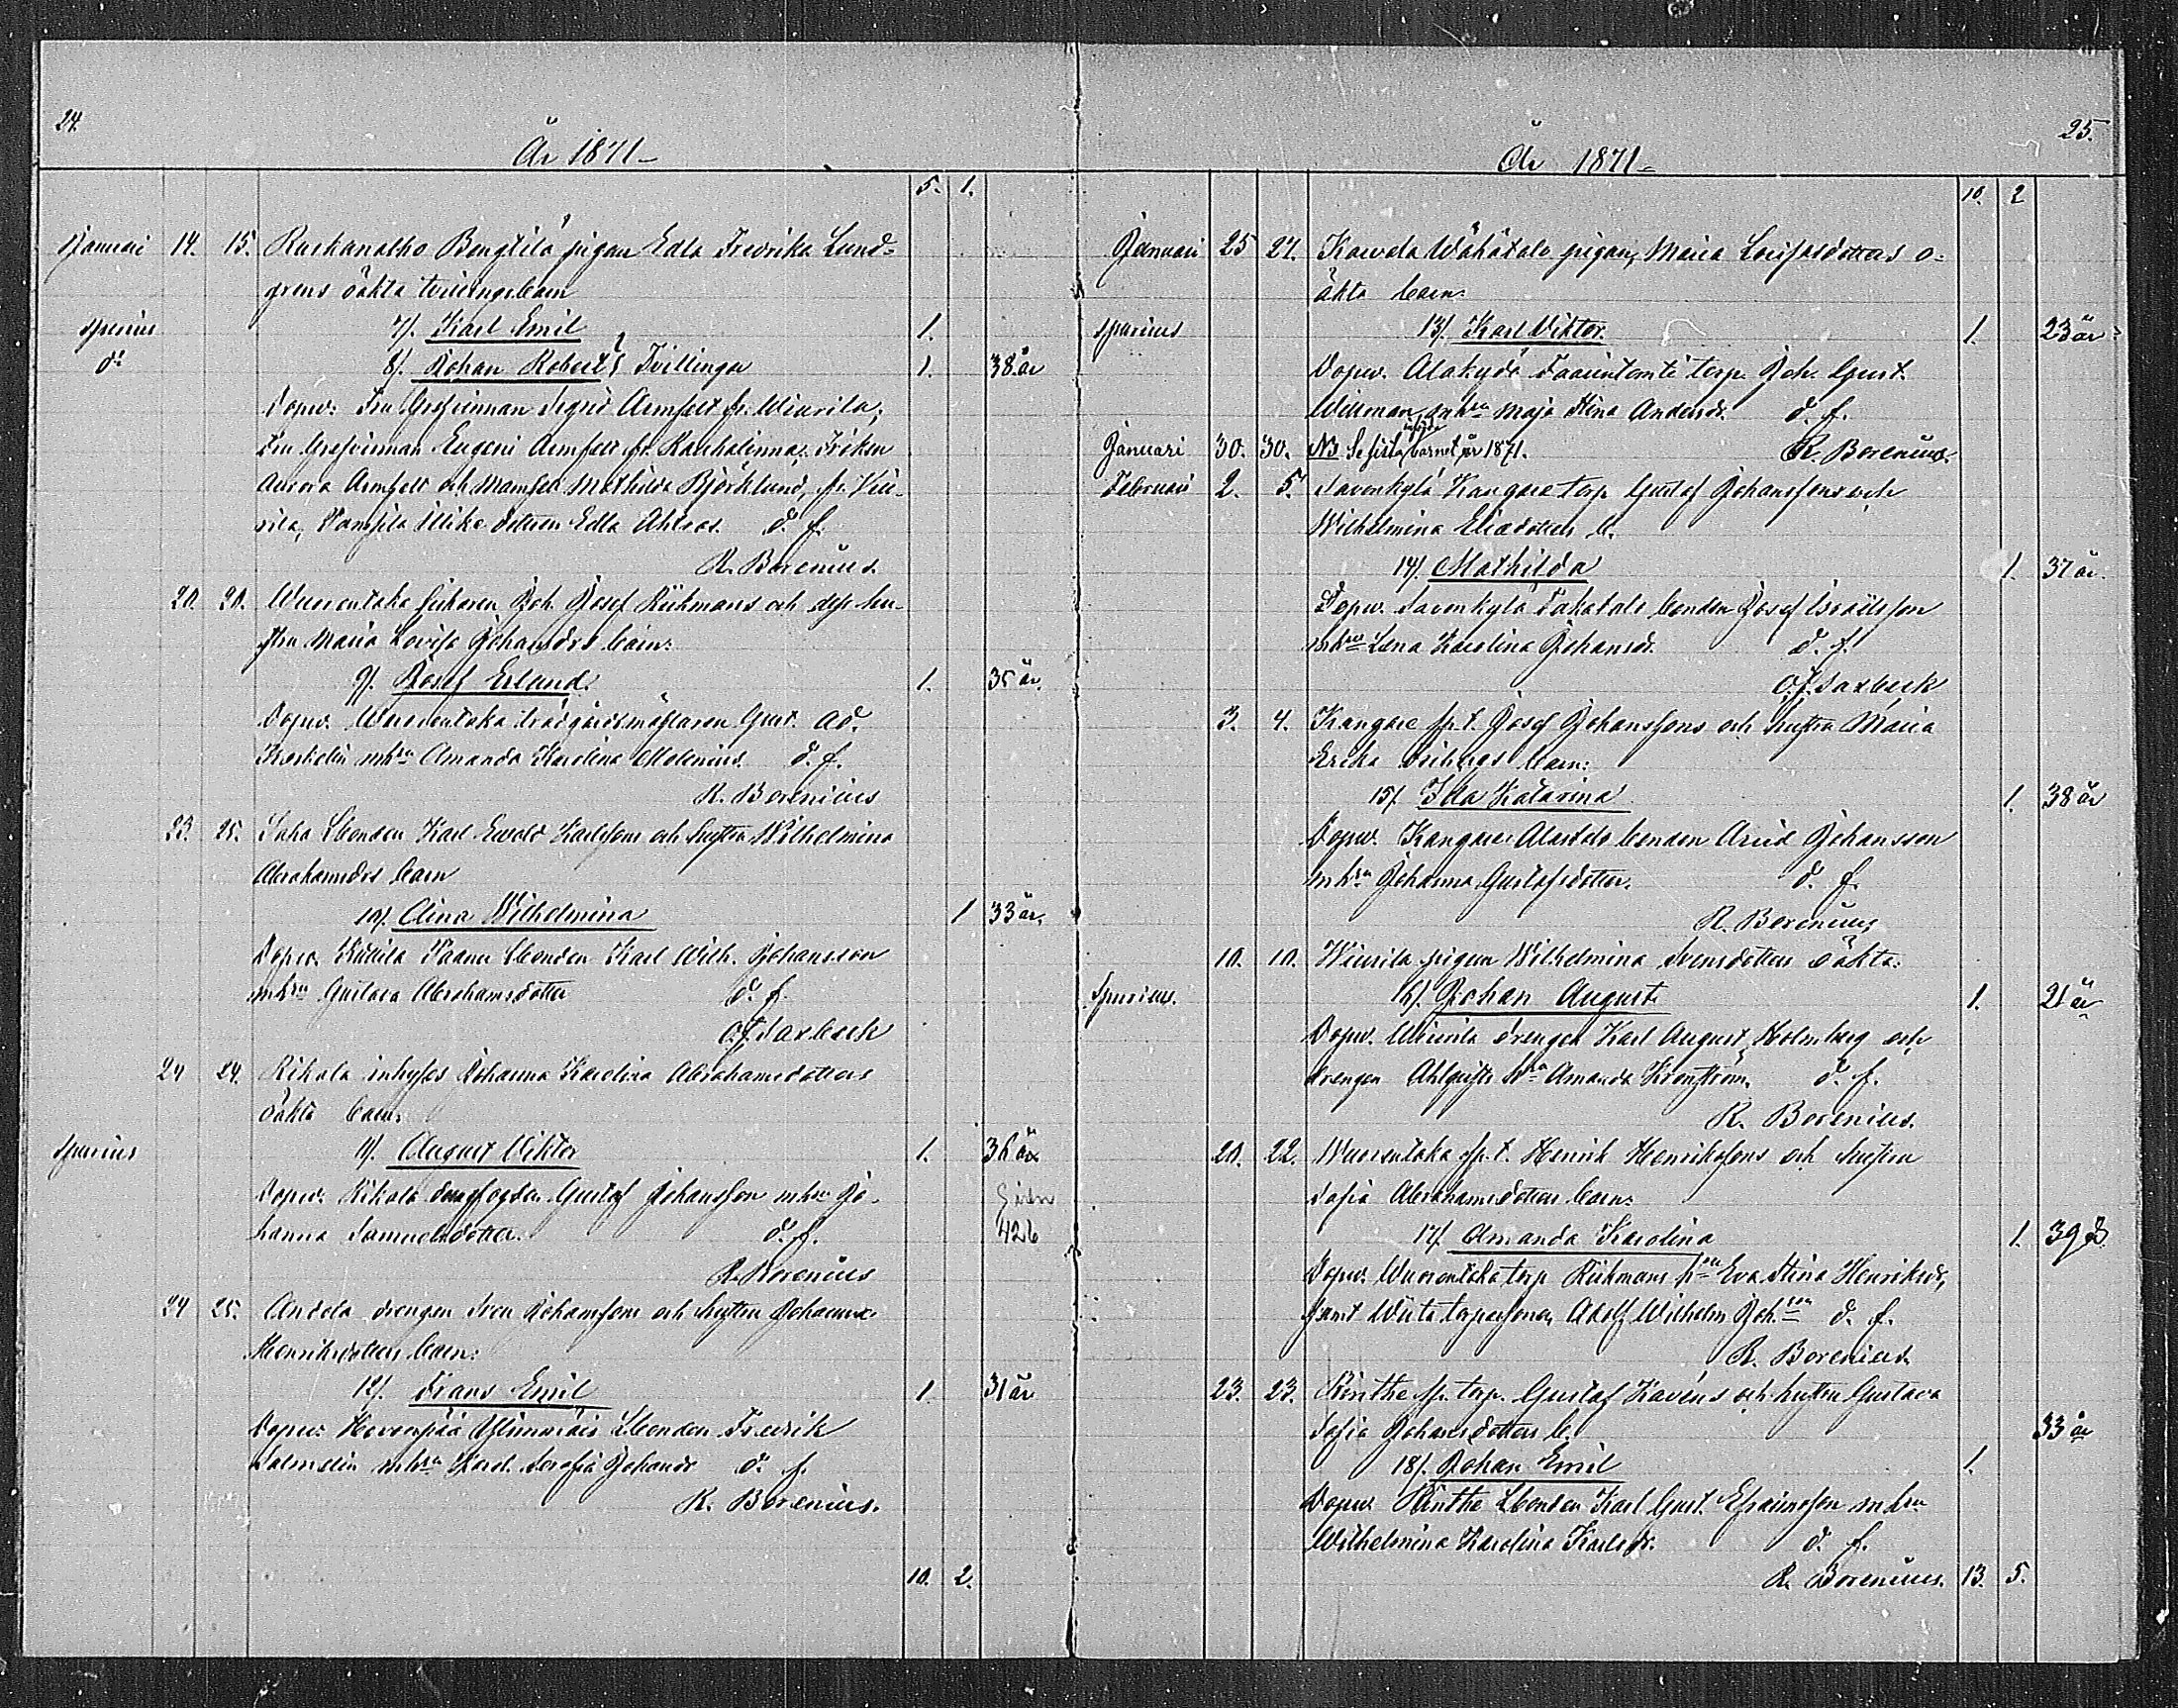 24.
År 1871
5. 1.
Januari 14. 15. Raskanalho Bengtilä pigan Edla Fredrika Lund-
grens oäkta tvillingsbarn
spurius 7). Karl Emil 1.
do 8). Johan Robert Tvillingar 1. 38 år
Dopw. Fru Grefvinnan Sigrid Armfelt fr. Wiurila,
Fru Grefvinnan Eugeni Armfelt fr. Rauhalinna, Fröken
Aurora Armfelt och Mamsell Mathilda Björklund, fr. Viu-
rila, dottren Edla d. f.
R. Borenius.
20. 20. Wuorentaka Joh. Josef Rükmans och dess hu-
stru Maria Lovisa Johansdrs barn:
9). Josef Erland. 1. 35 år.
Dopw. Wuorentaka trädgårdsmästaren Gust. Ad.
mhru Amanda Karolina Molenius. d. f.
R. Borenius
23. 25. Inha bonden Karl Ewald Karlssons och hustru Wilhelmina
Abrahamsdrs barn
10). Alina Wilhelmina 1 33 år.
Dopw. bonden Karl Wilh. Johansson
mhru Gustava Abrahamsdotter d. f.
O. J. Saxbeck
24 24. Rikala inhyses Johanna Karolina Abrahamsdotters
oäkta barn.
spurius 11). August Viktor 1. 36 år
Dopw. Rikala Gustaf Johansson mhru Jo-
hanna Samuelsdotter. d. f.
426
R. Borenius
24 25. Anjala drengen Sven Johanssons och hustru Johanna
Henriksdotters barn:
12). Frans Emil 1. 31 år
Dopw. bonden Fredrik
Salmelin mhru Karol. Serafia Johansdr d. f.
R. Borenius.
10. 2.
25.
År 1871
10. 2
Januari 25 27. Kavola Wähätalo pigan, Maria Lovisasdotters o-
äkta barn.
spurius 13). Karl Viktor. 1. 23 år
Dopw. Alakydö torp. Joh. Gust.
Willman, mhru Maja Stina Andersdr. d. f.
R. Borenius.
Januari 30. 30. N3 Se sista införda barnet år 1871.
Februari 2. 5. Savenkylä Kangare torp. Gustaf Johanssons och
Wilhelmina Eliedotters b.
14). Mathilda 1. 37 år.
Dopw. Savenkylä Takatalo bonden Josef Israelsson
mhru Lena Karolina Johansdr. d. f.
O. J. Saxbeck
3. 4. Kangare sp. t. Josef Johanssons och hustru Maria
Erika barn:
15). Ida Katarina 1. 38 år
Dopw. Kangare Alastalo bonden Arvid Johansson
mhru Johanna Gustafsdotter. d. f.
R. Borenius
10. 10. Wiurila pigan Wilhelmina Svensdotters oäkta:
Spurius. 16). Johan August 1. 21 år
Dopw. Wiurila drengen Karl August Holmberg och
drengen Ahlqvists hru Amanda Kronström. d. f.
R. Borenius.
20. 22. Wuorentaka sp. t. Henrik Henrikssons och hustru
Sofia Abrahamsdotters barn:
17). Amanda Karolina 1. 39 år
Dopw. Wuorentaka torp Rükmans hru Eva Stina Henriksdr,
samt Wiita torparsonen Adolf Wilhelm Joh.son d. f.
R. Borenius.
23. 23. Rinthe sp. torp. Gustaf Kavéns och hustru Gustava
Sofia Johansdotters b. 33 år
18). Johan Emil 1.
Dopw. Rinthe bonden Karl Gust. Efraimsson mhru
Wilhelmina Karolina Karlsdr. d. f.
R. Borenius. 13. 5.